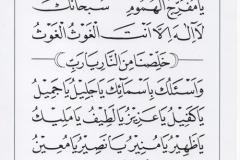 يَا مُفَرِّجَ الْهُمُومِ سُبْحَانَكَ
لَا اِلٰهَ اِلَّا اَنْتَ الْغَوْثُ الْغَوْثُ
خَلِّصْنَا مِنَ النَّارِ يَا رَبِّ
وَاَسْئَلُكَ بِاَسْمَائِكَ يَا جَلِيلُ يَا جَمِيلُ
يَا كَفِيلُ يَا عَزِيزُ يَا لَطِيفُ يَا مَلِيكُ
يَا ظَهِيرُ يَا مُنِيرُ يَا نَصِيرُ يَا مُعِينُ